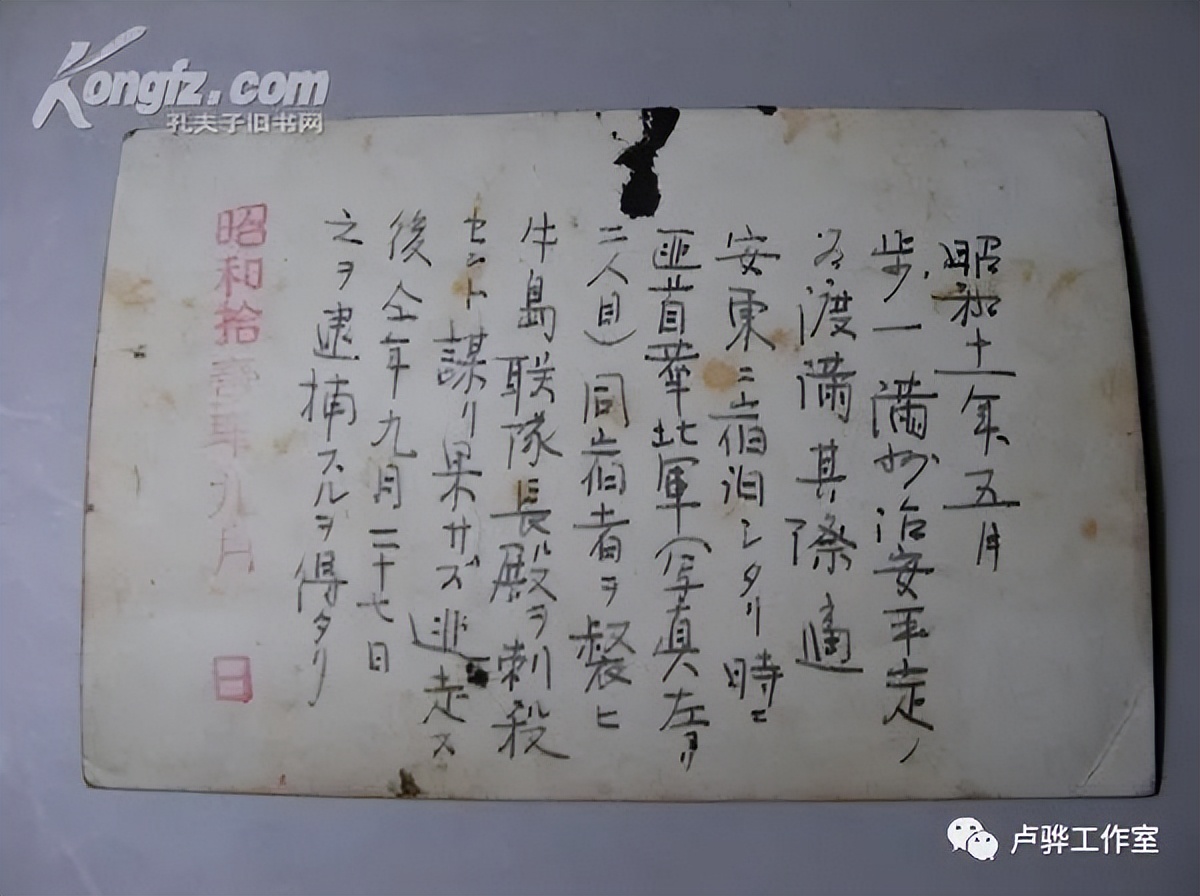 Kongfz.com
孔夫子旧书网
昭和十一年五月
歩一満州治安平定ノ
為渡満其際適
安東ニ宿泊シタリ時ニ
匪首華北軍(写真左ヨリ
二人目)同宿者ヲ襲ヒ
牛島联隊長殿ヲ刺殺
セント謀リ果サズ逃走ス
後仝年九月二十七日
之ヲ逮捕スルヲ得タリ
昭和拾壹年九月 日
卢骅工作室